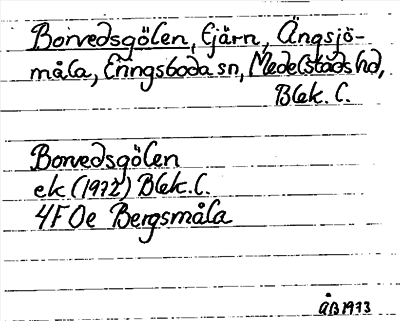 Borvedsgölen, tjärn, Ängsjö-
måla, Eringsboda sn, Medelstads hd,
Blek. l.
Borvedsgölen
ek (1972) Blek. l.
4F 0e Bergsmåla
ÅB 1973